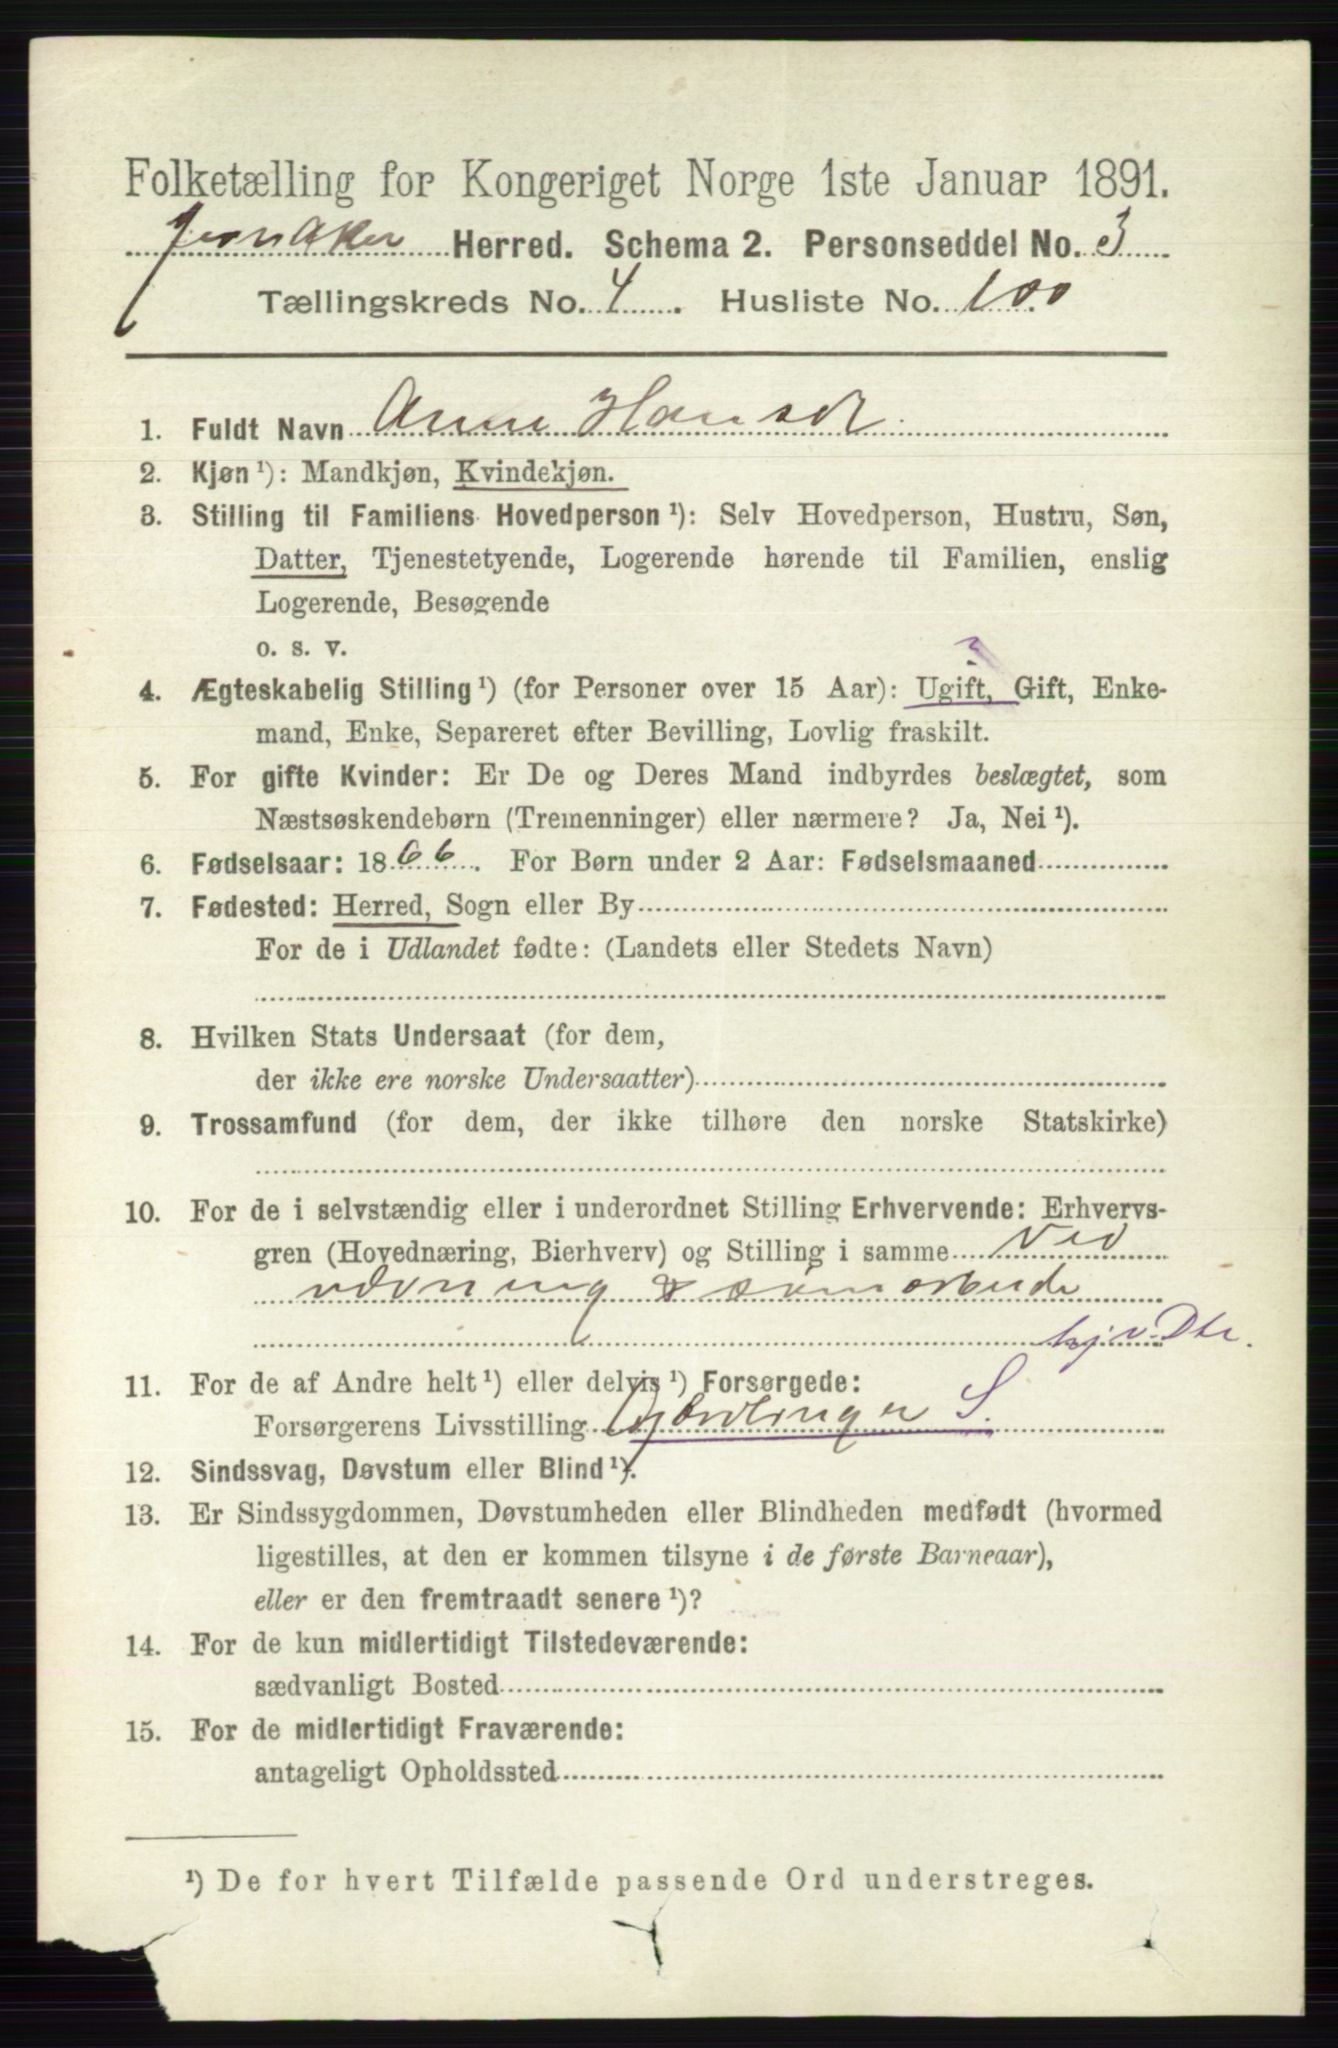 Folketælling for Kongeriget Norge 1ste Januar 1891.
Jevnaker Herred. Schema 2. Personseddel No. 3
Tællingskreds No. 4. Husliste No. 100
1. Fuldt Navn Anne Hansdt
2. Kjøn ¹): Mandkjøn, Kvindekjøn.
3. Stilling til Familiens Hovedperson ¹): Selv Hovedperson, Hustru, Søn,
Datter, Tjenestetyende, Logerende hørende til Familien, enslig
Logerende, Besøgende
o. s. v.
4. Ægteskabelig Stilling ¹) (for Personer over 15 Aar): Ugift, Gift, Enke-
mand, Enke, Separeret efter Bevilling, Lovlig fraskilt.
5. For gifte Kvinder: Er De og Deres Mand indbyrdes beslægtet, som
Næstsøskendebørn (Tremenninger) eller nærmere? Ja, Nei ¹).
6. Fødselsaar: 1866. For Børn under 2 Aar: Fødselsmaaned
7. Fødested: Herred, Sogn eller By
For de i Udlandet fødte: (Landets eller Stedets Navn)
8. Hvilken Stats Undersaat (for dem,
der ikke ere norske Undersaatter)
9. Trossamfund (for dem, der ikke tilhøre den norske Statskirke)
10. For de i selvstændig eller i underordnet Stilling Erhvervende: Erhvervs-
gren (Hovednæring, Bierhverv) og Stilling i samme Ved
vævning & sømarbeide
hj. v. Dtr.
11. For de af Andre helt ¹) eller delvis ¹) Forsørgede:
Forsørgerens Livsstilling S.
12. Sindssvag, Døvstum eller Blind ¹).
13. Er Sindssygdommen, Døvstumheden eller Blindheden medfødt (hvormed
ligestilles, at den er kommen tilsyne i de første Barneaar),
eller er den fremtraadt senere ¹)?
14. For de kun midlertidigt Tilstedeværende:
sædvanligt Bosted
15. For de midlertidigt Fraværende:
antageligt Opholdssted
¹) De for hvert Tilfælde passende Ord understreges.